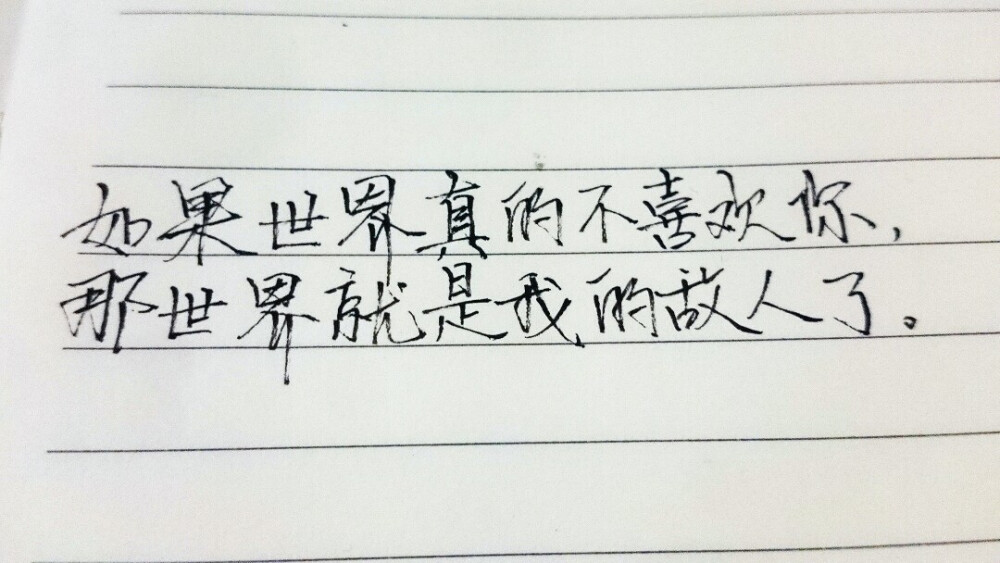 如果世界真的不喜欢你,
那世界就是我的敌人了。